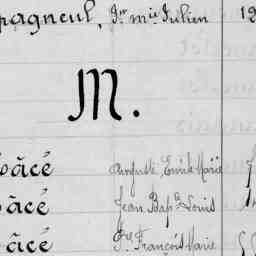 pagneul, Jn mie Julien 19
M.
ãcé Auguste Emile Marie
ãcé Jean Bapte Louis
ãcé Pre François Marie